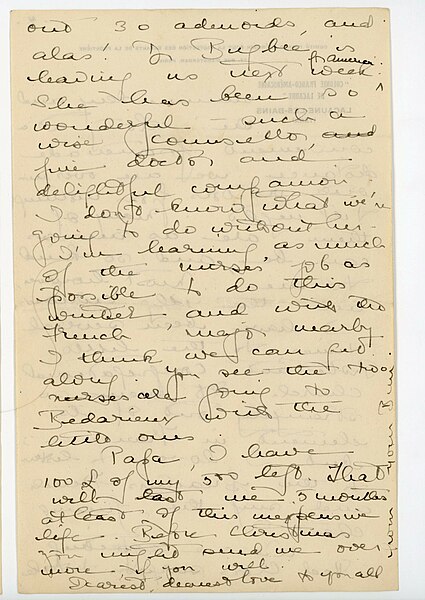 out 30 adenoids, and
alas! Dr Bugbee is
leaving us next week for America.
She has been so
wonderful such a
wise counsellor, and
fine doctor and
delightful companion
I don't know what we're
going to do without her.
I'm learning as much
of the nurses' job as
possible to do this
winter and with the
French major nearby
I think we can get
along. You see the two
nurses are going to
Bedarieux with the
little ones.
Papa, I have
100 £ of my 500 left. That
will last me 3 months
at least of this inexpensive
life. Before Christmas
you might send me over
more if you will.
Dearest, dearest love to you all
from your